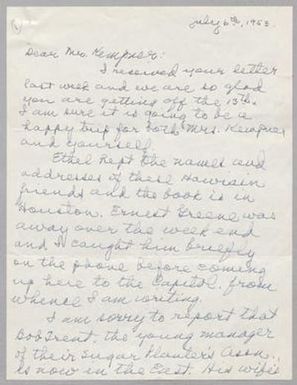 July 6th, 1953.
Dear Mrs. Kempner:
I received your letter
last week and we are so glad
you are getting off the 13th.
I am sure it is going to be a
happy trip for both Mrs. Kempner
and yourself.
Ethel kept the names and
addresses of these Hawaiian
friends and the book is in
Houston. Ernest Greene was
away over the week end
and I caught him briefly
on the phone before coming
up here to the Capitol, from
whence I am writing.
I am sorry to report that
Bob Trent, the young manager
of their Sugar Planters Assn.,
is now in the East. His wife's